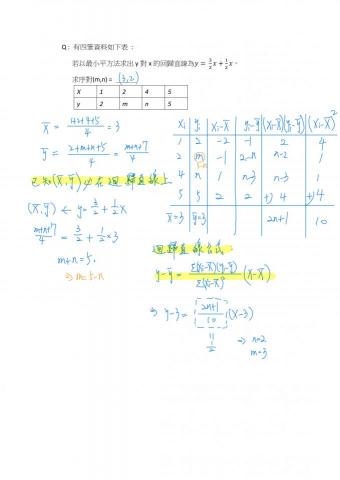 Q : 有四筆資料如下表 :
若以最小平方法求出 y 對 x 的回歸直線為y = 3/2 x + 1/2 x，
求序對(m,n) = (3,2)
X 1 2 4 5
y 2 m n 5
x̄ = 1+2+4+5/4 = 3
ȳ = 2+m+n+5/4 = m+n+7/4
已知(x̄,ȳ)必在迴歸直線上
(x̄,ȳ) ← y = 3/2 + 1/2 x
m+n+7/4 = 3/2 + 1/2 × 3
m+n = 5.
⇒ m = 5-n
xi yi xi-x̄ yi-ȳ (xi-x̄)(yi-ȳ) (xi-x̄)²
1 2 -2 -1 2 4
2 m -1 2-n n-2 1
5-n
4 n 1 n-3 n-3 1
5 5 2 2 +) 4 +) 4
x̄=3 ȳ=3 2n+1 10
迴歸直線公式
y-ȳ = Σ(xi-x̄)(yi-ȳ)/Σ(xi-x̄)² (x-x̄)
⇒ y-3 = 2n+1/10 (x-3)
11
1/2 ⇒ n=2
m=3